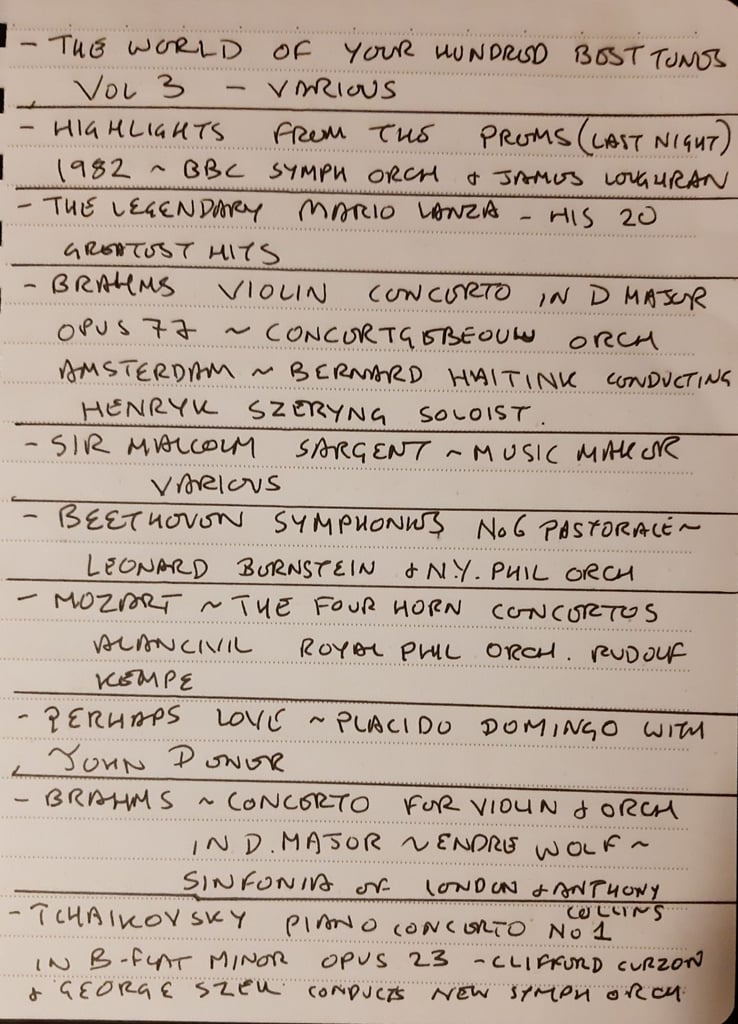 - THE WORLD OF YOUR HUNDRED BEST TUNES
VOL 3 - VARIOUS
- HIGHLIGHTS FROM THE PROMS (LAST NIGHT)
1982 ~ BBC SYMPH ORCH & JAMES LOUGHRAN
- THE LEGENDARY MARIO LANZA - HIS 20
GREATEST HITS
- BRAHMS VIOLIN CONCERTO IN D MAJOR
OPUS 77 ~ CONCERTGEBEOUW ORCH
AMSTERDAM ~ BERNARD HAITINK CONDUCTING
HENRYK SZERYNG SOLOIST.
- SIR MALCOLM SARGENT ~ MUSIC MAKER
VARIOUS
- BEETHOVEN SYMPHONIES No 6 PASTORALE ~
LEONARD BERNSTEIN & N.Y. PHIL ORCH
- MOZART ~ THE FOUR HORN CONCERTOS
ALAN CIVIL ROYAL PHIL ORCH. RUDOLF
KEMPE
- PERHAPS LOVE ~ PLACIDO DOMINGO WITH
JOHN DENVER
- BRAHMS ~ CONCERTO FOR VIOLIN & ORCH
IN D. MAJOR ~ ENDRE WOLF ~
SINFONIA OF LONDON & ANTHONY
COLLINS
- TCHAIKOVSKY PIANO CONCERTO No 1
IN B-FLAT MINOR OPUS 23 - CLIFFORD CURZON
& GEORGE SZELL CONDUCTS NEW SYMPH ORCH